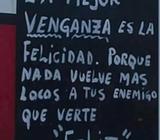 LA MEJOR
VENGANZA ES LA
FELICIDAD. PORQUE
NADA VUELVE MAS
LOCOS A TUS ENEMIGO
QUE VERTE
"FELIZ"